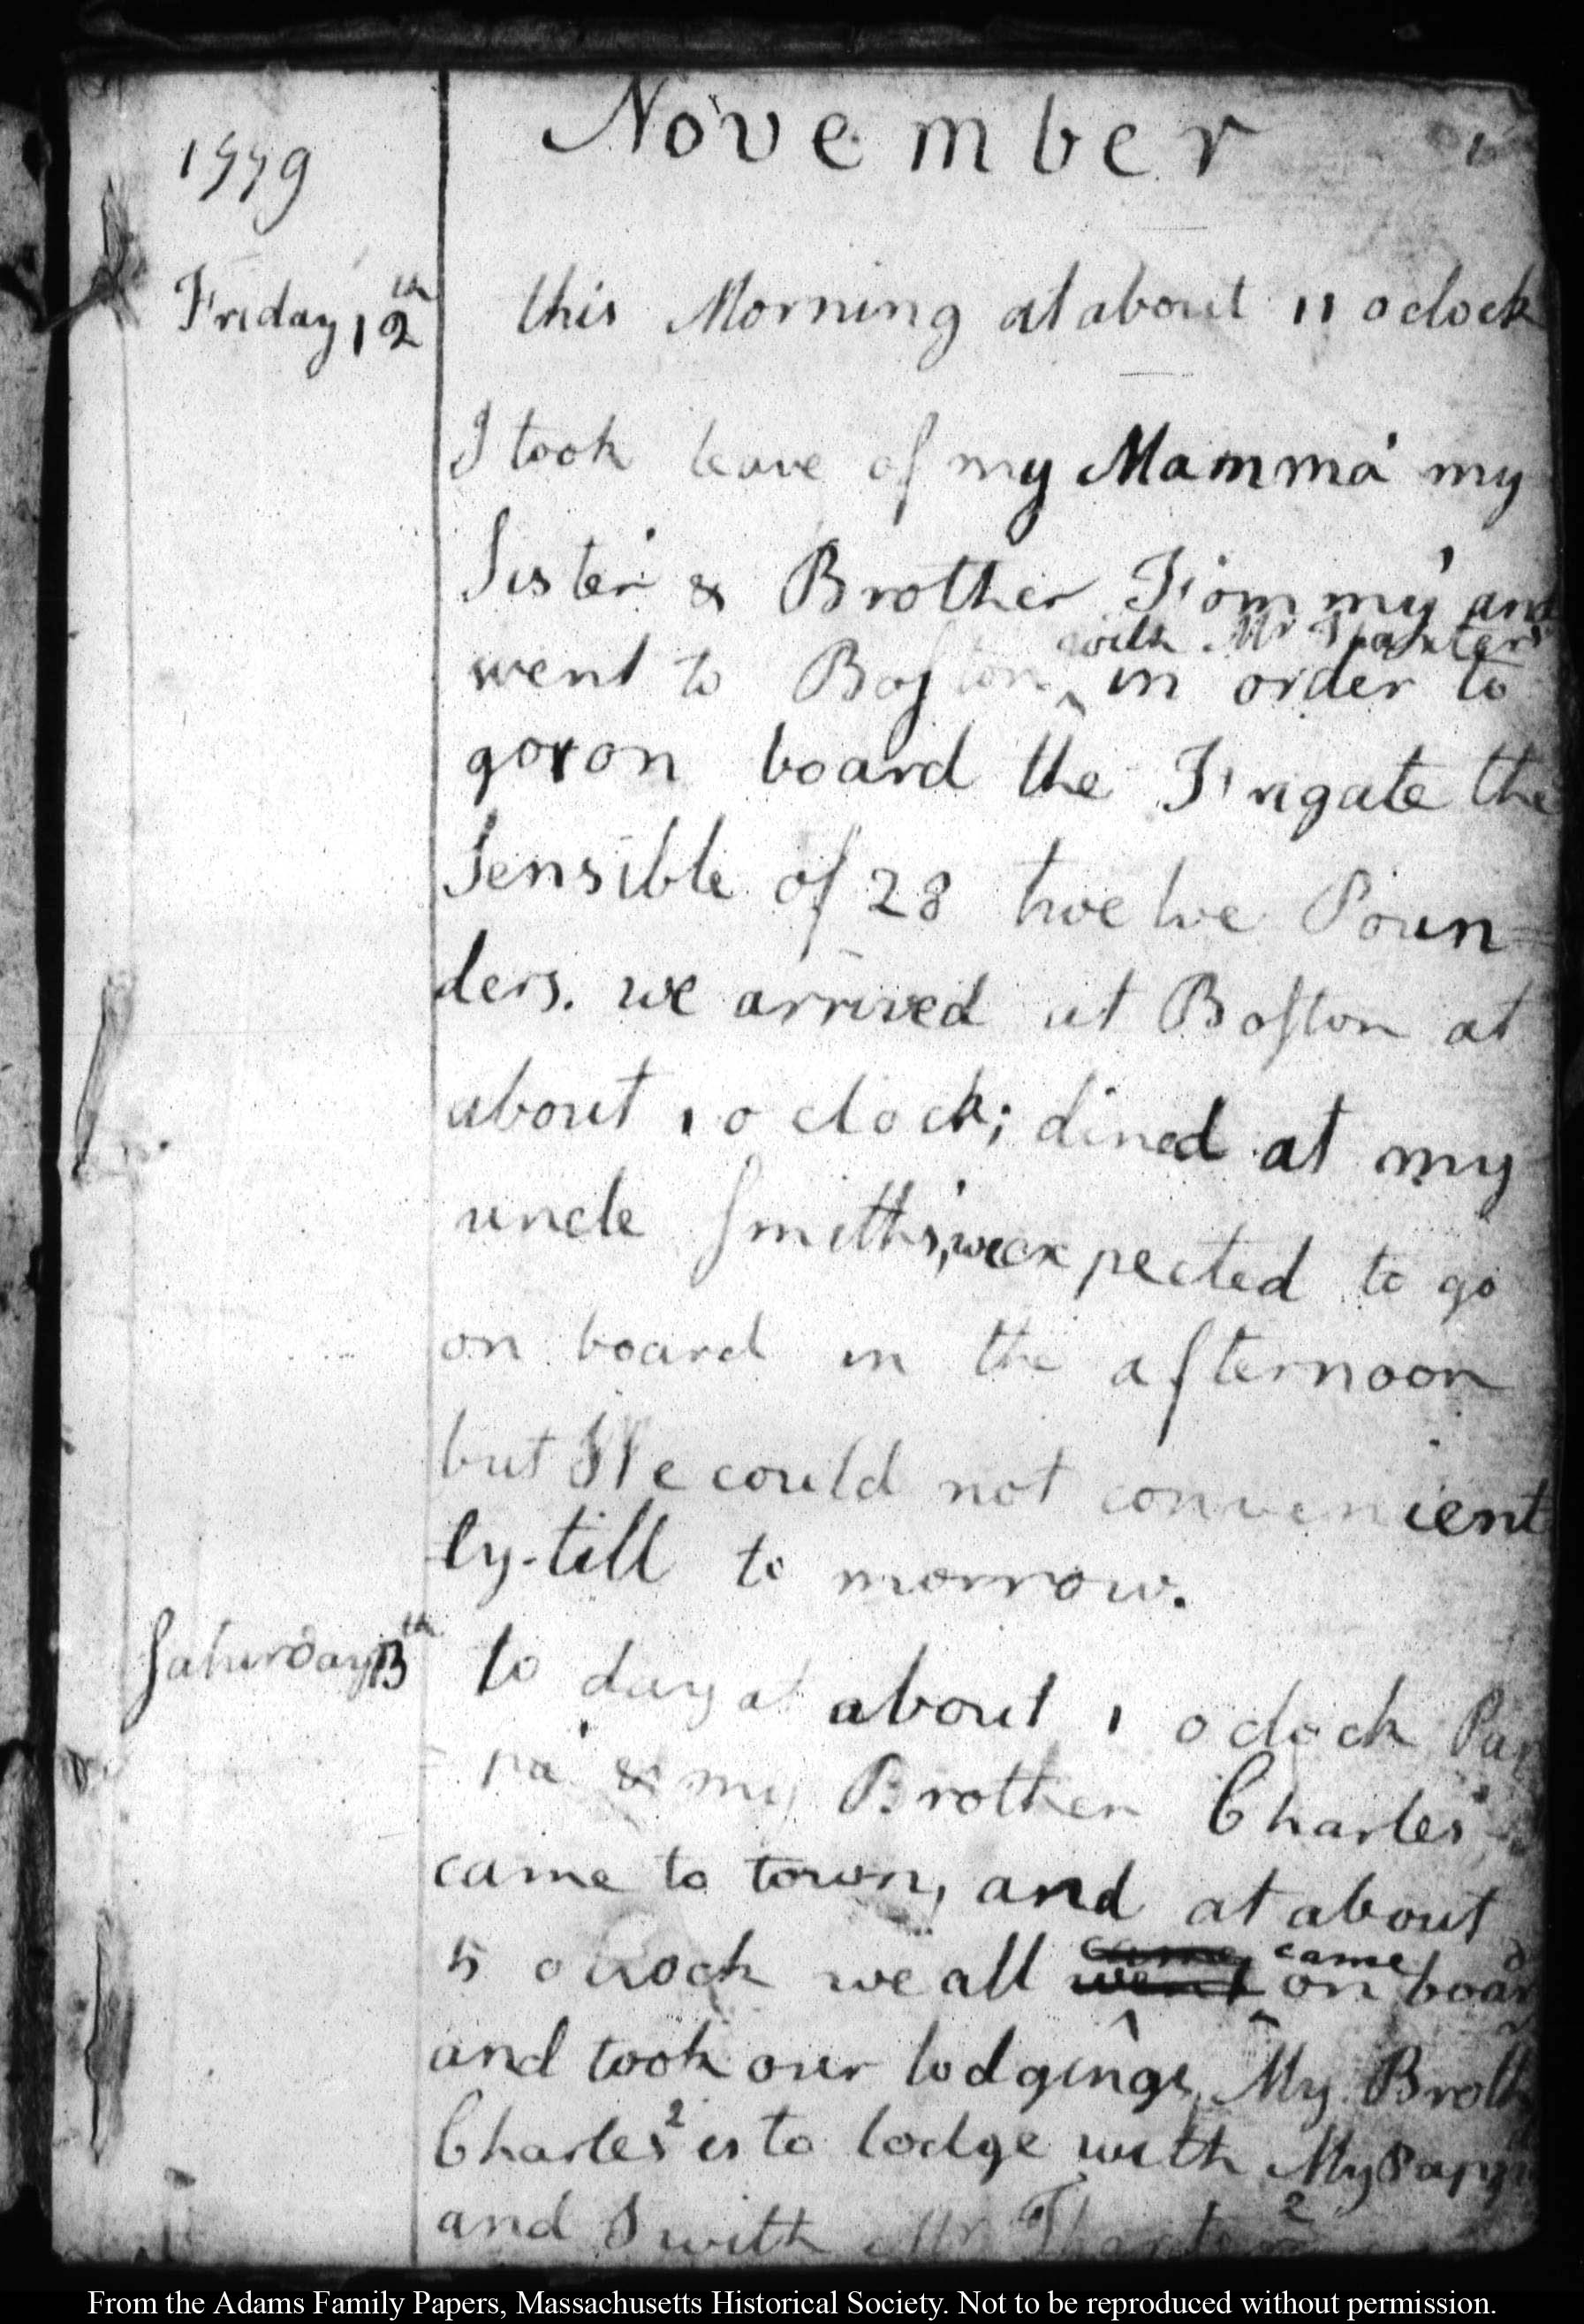 November 1
1779
Friday 12th this Morning at about 11 o clock
I took leave of my Mamma my
Sister & Brother Tommy and
with Mr Thaxter
went to Boston ^ in order to
go on board the Frigate the
Sensible of 28 twelve Poun=
ders. we arrived at Boston at
about 1 o clock; dined at my
uncle Smiths, we expected to go
on board in the afternoon
but We could not convenient
-ly till to morrow.
Saturday 13th to day at about 1 o clock Pap
=pa & my Brother Charles
came to town, and at about
came came
5 o clock we all went ^ on board
and took our lodgings, My Broth
Charles 2 is to lodge with My Pappa
and I with Mr Thaxter 2
From the Adams Family Papers, Massachusetts Historical Society. Not to be reproduced without permission.